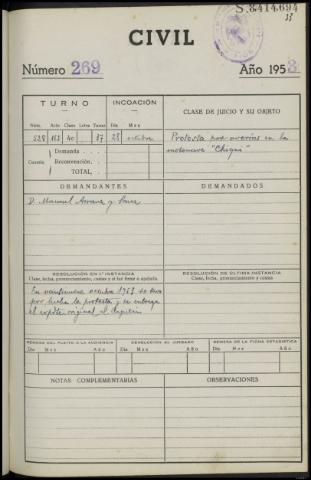 S. 8414.694
CIVIL
Número 269 Año 1953
TURNO
INCOACIÓN
CLASE DE JUICIO Y SU OBJETO
Núm. Año Clase Letra Tomo Día Mes
528 153 40 37 28 octubre
Protesta por averías en la
motonave "Chiqui"
Demanda
Cuantía Reconvención.
TOTAL.
DEMANDANTES
DEMANDADOS
D. Manuel
RESOLUCIÓN EN 1.ª INSTANCIA
Clase, fecha, pronunciamiento, costas y si fué firme o apelada.
RESOLUCIÓN DE ÚLTIMA INSTANCIA
Clase, fecha, pronunciamiento y costas.
En veintinueve octubre 1953 se tuvo
por hecha la protesta y se entrega
el original al
REMESA DEL PLEITO A LA AUDIENCIA
DEVOLUCIÓN AL JUZGADO
REMESA DE LA FICHA ESTADÍSTICA
Día Mes Año Día Mes Año Día Mes Año
NOTAS COMPLEMENTARIAS
OBSERVACIONES